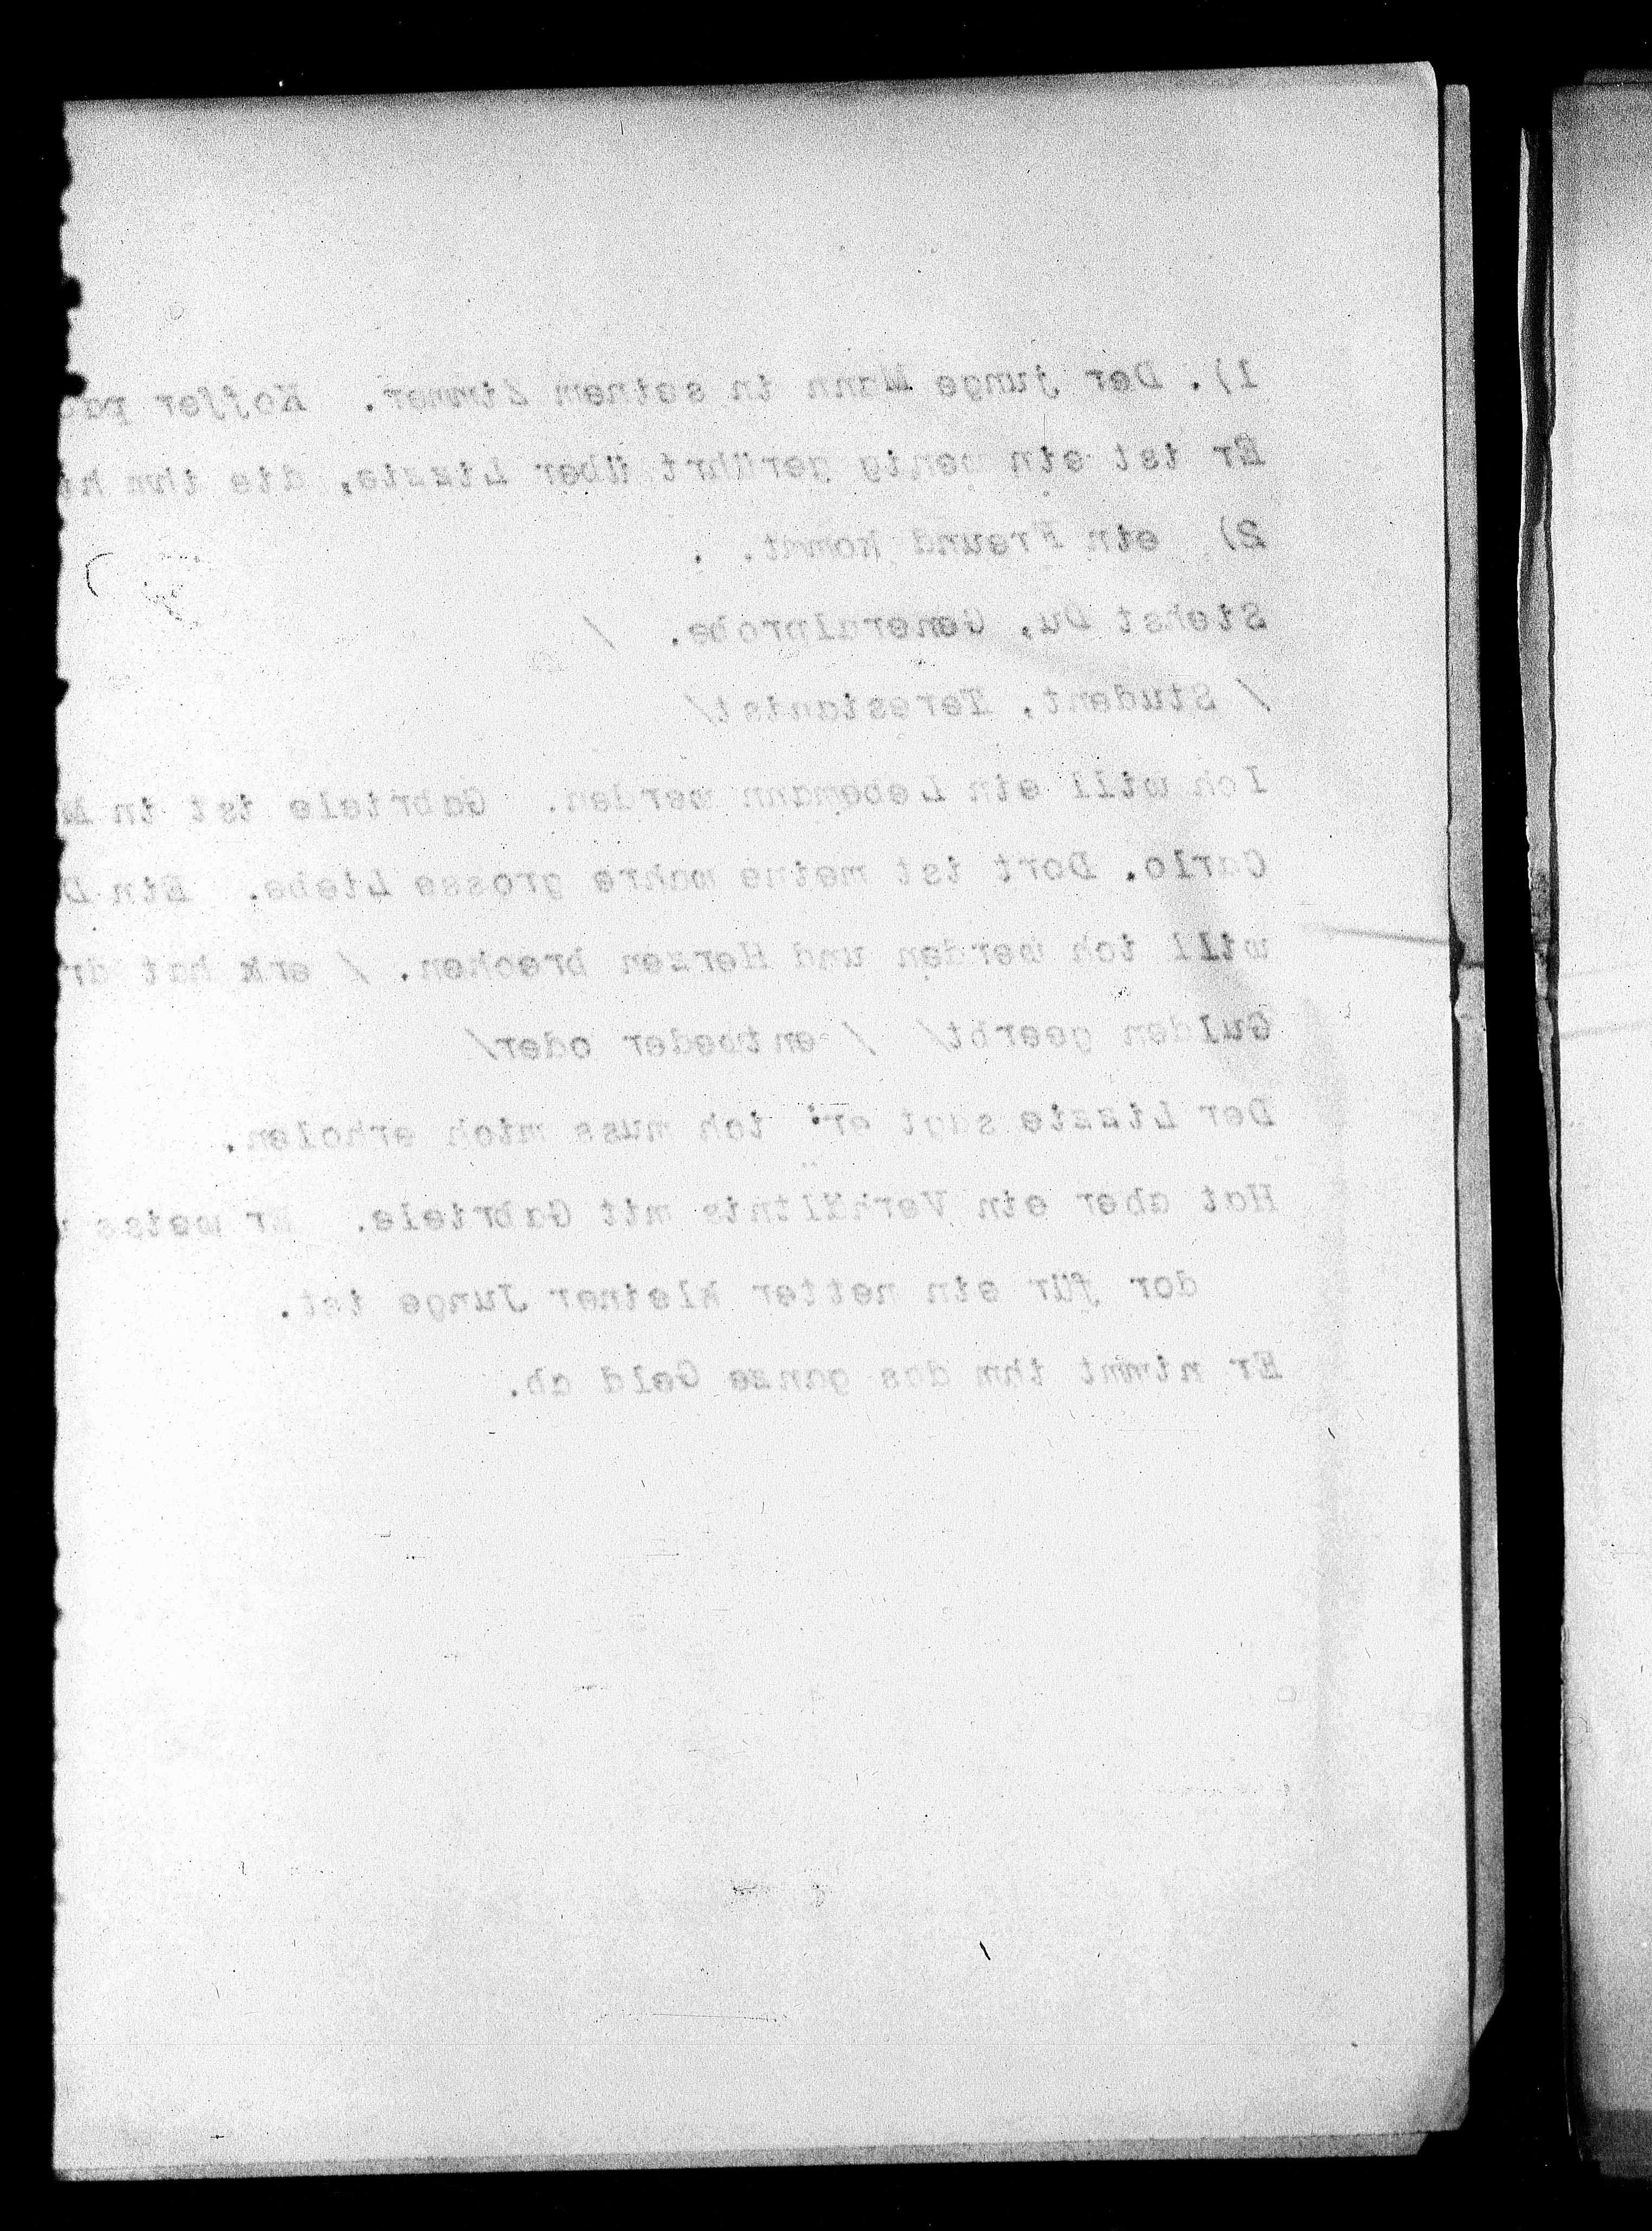 1). Der junge Mann in seinem Zimmer. Koffer pac
Er ist ein wenig gerührt über Lizzie, die ihm hi
2) ein Freund kommt. .
Siehst Du, Generalprobe. /
/ Student, Teresianist/
Ich will ein Lebemann werden. Gabriele ist in M
Carlo. Dort ist meine wahre grosse Liebe. Ein D
will ich werden und Herzen brechen. / erk hat dr
Gulden geerbt/ / entweder oder/
Der Lizzie sagt er: ich muss mich erholen.
Hat aber ein Verhältnis mit Gabriele. Er weiss
dor für ein netter kleiner Junge ist.
Er nimmt ihm das ganze Geld ab.